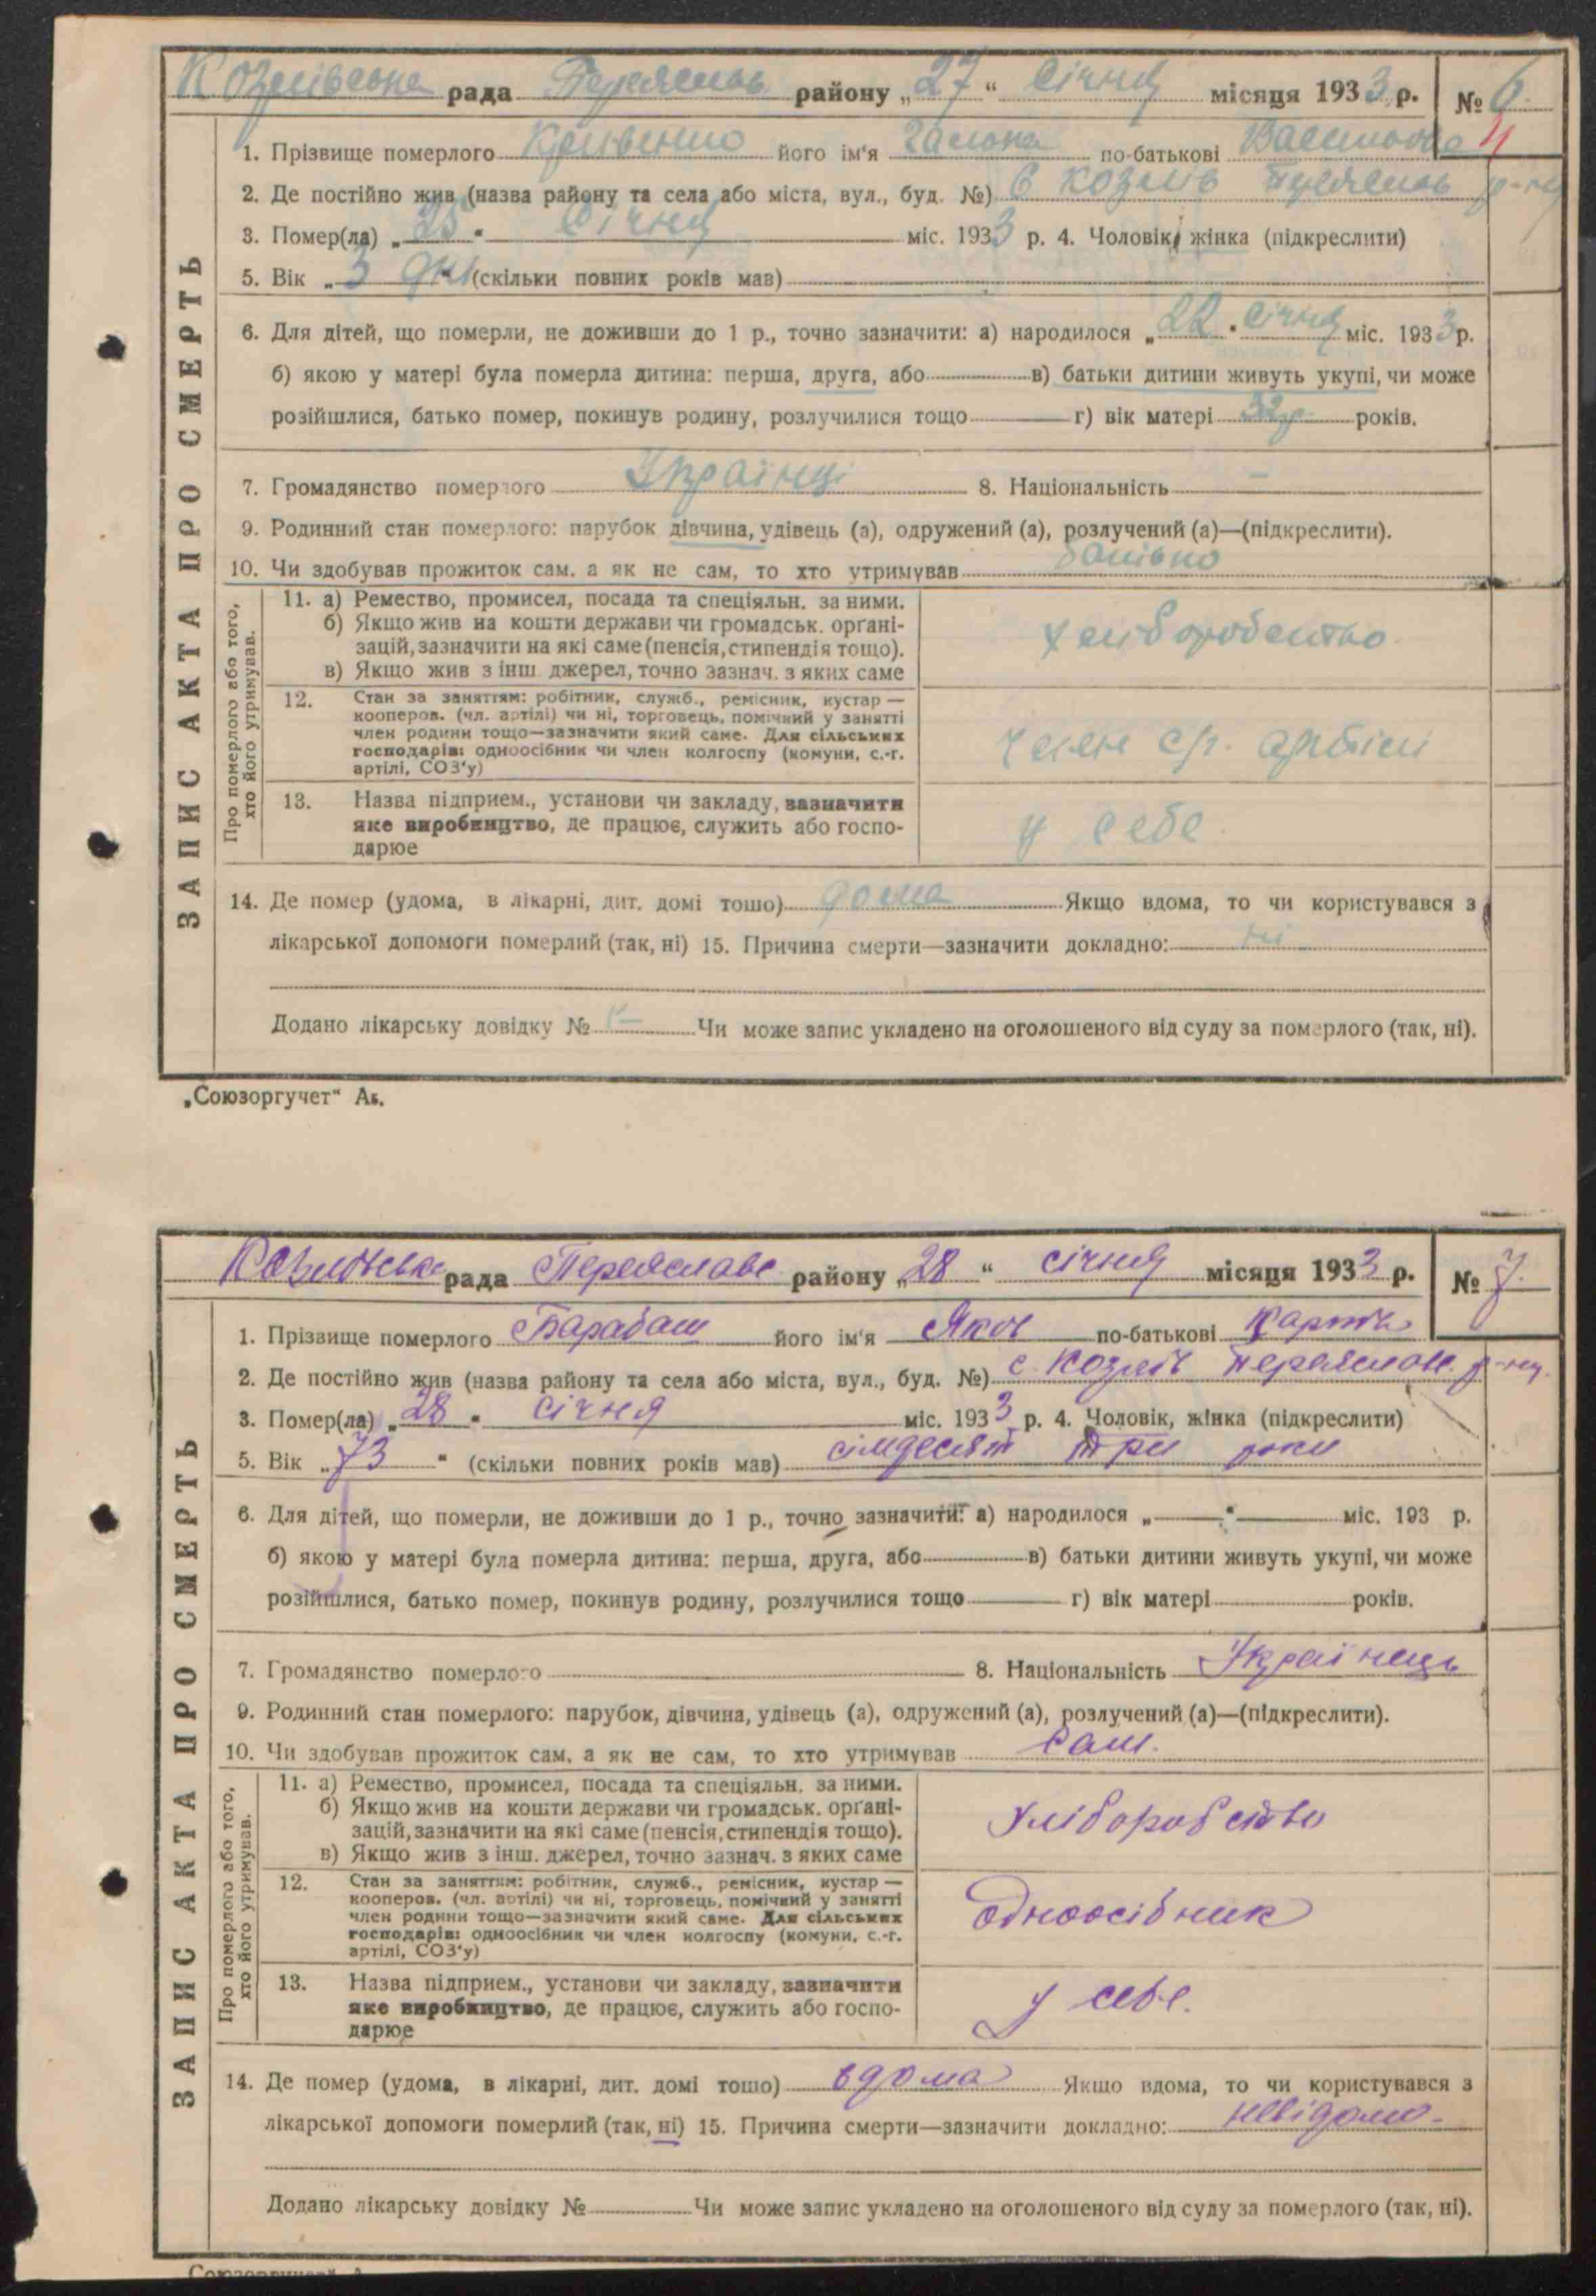 рада Переяслав району „27“ Січня місяця 1933 р. № 6.
4
1. Прізвище померлого його ім'я по-батькові
2. Де постійно жив (назва району та села або міста, вул., буд. №) с Козлів Переяслав р-ну
3. Помер(ла) „25“ Січня міс. 1933 р. 4. Чоловік, жінка (підкреслити)
5. Вік „3 дні“ (скільки повних років мав)
6. Для дітей, що померли, не доживши до 1 р., точно зазначити: а) народилося „22“ Січня міс. 1933 р.
б) якою у матері була померла дитина: перша, друга, або в) батьки дитини живуть укупі, чи може
розійшлися, батько помер, покинув родину, розлучилися тощо г) вік матері 32 р. років.
7. Громадянство померлого Українці 8. Національність —
9. Родинний стан померлого: парубок дівчина, удівець (а), одружений (а), розлучений (а)—(підкреслити).
10. Чи здобував прожиток сам, а як не сам, то хто утримував
11. а) Ремество, промисел, посада та спеціяльн. за ними.
б) Якщо жив на кошти держави чи громадськ. орґані-
зацій, зазначити на які саме (пенсія, стипендія тощо).
в) Якщо жив з інш джерел, точно зазнач. з яких саме
12. Стан за заняттям: робітник, служб., ремісник, кустар —
кооперов. (чл. артілі) чи ні, торговець, помічний у занятті
член родини тощо—зазначити який саме. Для сільських
господарів: одноосібник чи член колгоспу (комуни, с.-г.
артілі, СОЗ'у)
член с/г. артілі
13. Назва підприєм., установи чи закладу, зазначити
яке виробництво, де працює, служить або госпо-
дарює
у себе.
14. Де помер (удома, в лікарні, дит. домі тощо) дома Якщо вдома, то чи користувався з
лікарської допомоги померлий (так, ні) 15. Причина смерти—зазначити докладно: ні
Додано лікарську довідку № — Чи може запис укладено на оголошеного від суду за померлого (так, ні).
ЗАПИС АКТА ПРО СМЕРТЬ
Про померлого або того,
хто його утримував.
„Союзоргучет“
рада Переяславс району „28“ січня місяця 1933 р. № 7.
1. Прізвище померлого Барабаш його ім'я Яків по-батькові
2. Де постійно жив (назва району та села або міста, вул., буд. №) с. Козлів Переяслав. р-ну.
3. Помер(ла) „28“ січня міс. 1933 р. 4. Чоловік, жінка (підкреслити)
5. Вік „73“ (скільки повних років мав) сімдесят три роки
6. Для дітей, що померли, не доживши до 1 р., точно зазначити: а) народилося „—“ міс. 193 р.
б) якою у матері була померла дитина: перша, друга, або в) батьки дитини живуть укупі, чи може
розійшлися, батько помер, покинув родину, розлучилися тощо г) вік матері років.
7. Громадянство померлого 8. Національність Українець
9. Родинний стан померлого: парубок, дівчина, удівець (а), одружений (а), розлучений (а)—(підкреслити).
10. Чи здобував прожиток сам, а як не сам, то хто утримував Сам.
11. а) Ремество, промисел, посада та спеціяльн. за ними.
б) Якщо жив на кошти держави чи громадськ. орґані-
зацій, зазначити на які саме (пенсія, стипендія тощо).
в) Якщо жив з інш. джерел, точно зазнач. з яких саме
Хліборобство
12. Стан за заняттям: робітник, служб., ремісник, кустар —
кооперов. (чл. артілі) чи ні, торговець, помічний у занятті
член родини тощо—зазначити який саме. Для сільських
господарів: одноосібник чи член колгоспу (комуни, с.-г.
артілі, СОЗ'у)
Одноосібник
13. Назва підприєм., установи чи закладу, зазначити
яке виробництво, де працює, служить або госпо-
дарює
у себе.
14. Де помер (удома, в лікарні, дит. домі тощо) вдома Якщо вдома, то чи користувався з
лікарської допомоги померлий (так, ні) 15. Причина смерти—зазначити докладно: невідомо.
Додано лікарську довідку № Чи може запис укладено на оголошеного від суду за померлого (так, ні).
ЗАПИС АКТА ПРО СМЕРТЬ
Про померлого або того,
хто його утримував.